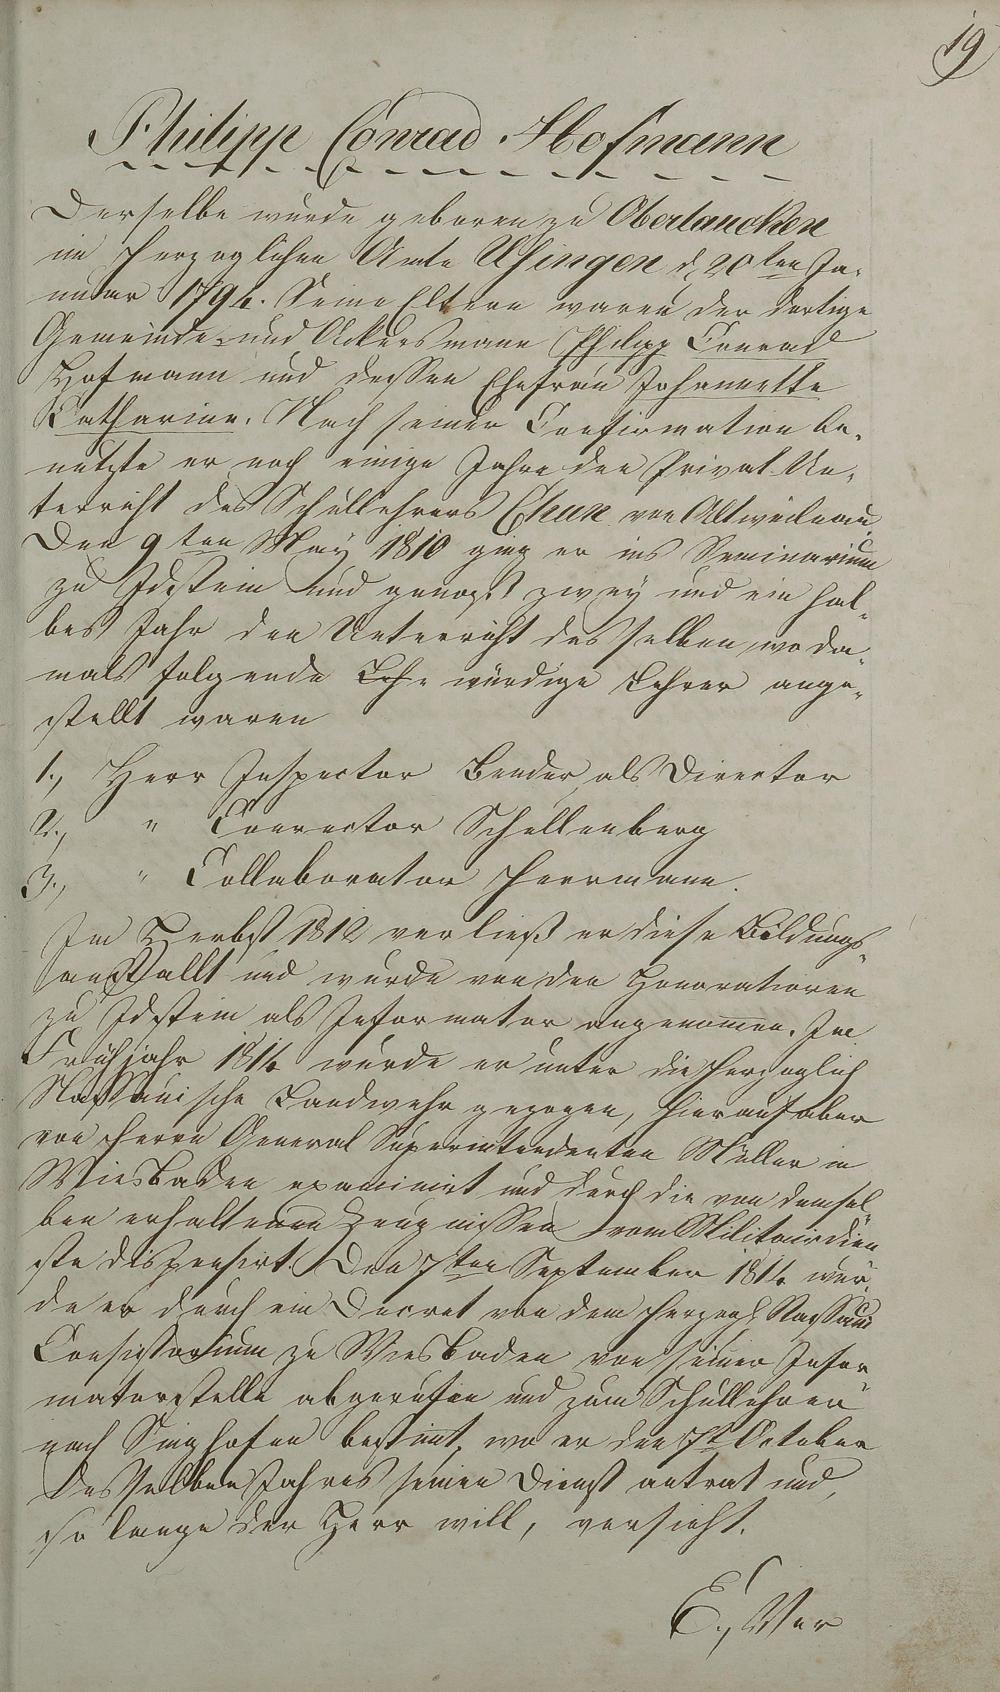 19
Philipp Conrad Hofmann
Derselbe wurde geboren zu Oberlaucken
im Herzoglichen Amte Usingen d. 20ten Ja-
nuar 1794. Seine Eltern waren der dortige
Gemeinds- und Ackersmann Philipp Conrad
Hofmann und dessen Ehefrau Johannette
Catharine. Nach seiner Confirmation be-
nutzte er noch einige Jahre den Privat-Un-
terricht des Schullehrers von Altweilnau.
Den 9ten May 1810 ging er ins Seminarium
zu Idstein und genoß zwey und ein hal-
bes Jahr den Unterricht desselben, wo da-
mals folgende würdige Lehrer ange-
stellt waren
1., Herr Inspector Bender, als Director
2., " Conrector Schellenberg
3., " Collaborator Herrmann.
Im Herbst 1812 verließ er diese Bildungs-
anstallt und wurde von den Honoratioren
zu Idstein als Informator angenomen. Im
Frühjahr 1814 wurde er unter die Herzoglich
Nassauische Landwehr gezogen, hierauf aber
von Herrn General Superintendenten Müller in
Wiesbaden examinirt und durch die von demsel-
ben erhaltenen Zeugnissen vom Militairdien
ste dispensirt. Den 7ten September 1814 wur-
de er durch ein Decret von dem Herzogl. Nassaui
Consistorium zu Wiesbaden von seiner Infor
matorstelle abgerufen und zum Schullehrer
nach Singhofen bestimt, wo er den October
desselben Jahres seinen Dienst antrat und,
so lange der Herr will, versieht.
E., Ver